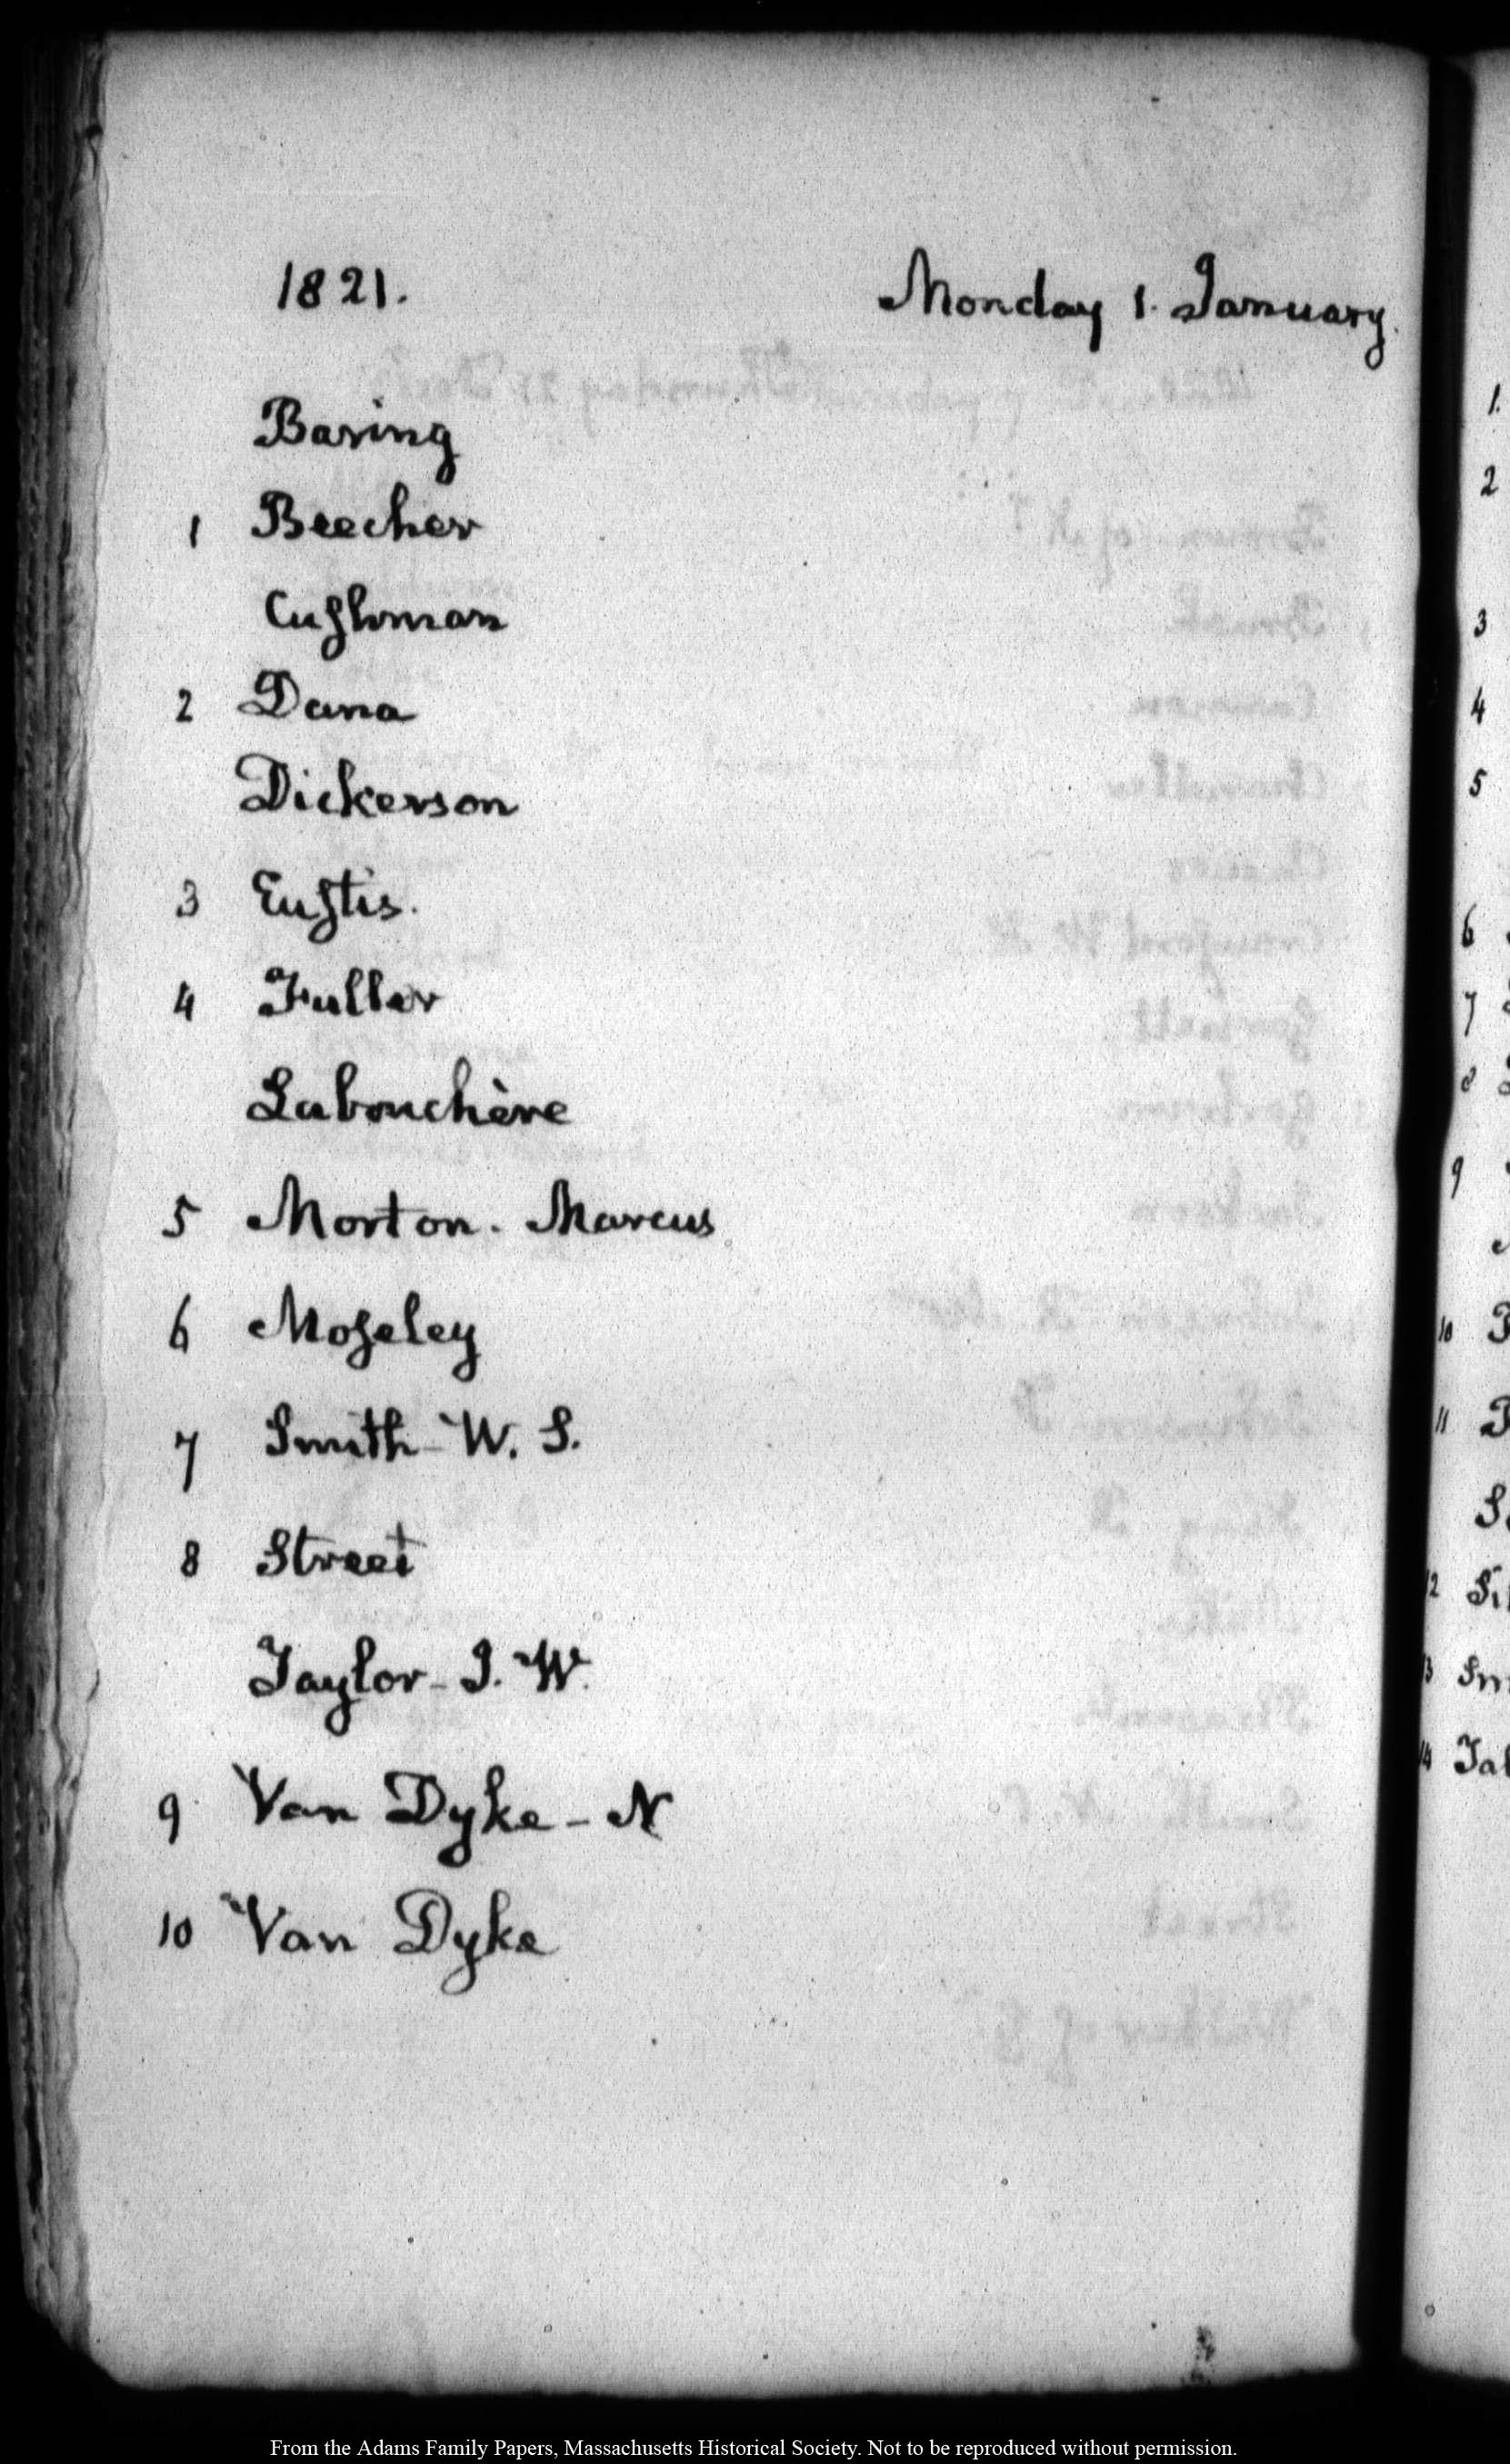 1821. Monday 1. January.
Baring
1 Beecher
Cuſhman
2 Dana
Dickerson
3 Euſtis.
4 Fuller
Labouchère
5 Morton. Marcus
6 Moſeley
7 Smith - W. S.
8 Street
Taylor - J. W.
9 Van Dyke - N
10 Van Dyke
1.
2
3
4
5
6
7
8
9
10
11
12
13
14
From the Adams Family Papers, Massachusetts Historical Society. Not to be reproduced without permission.